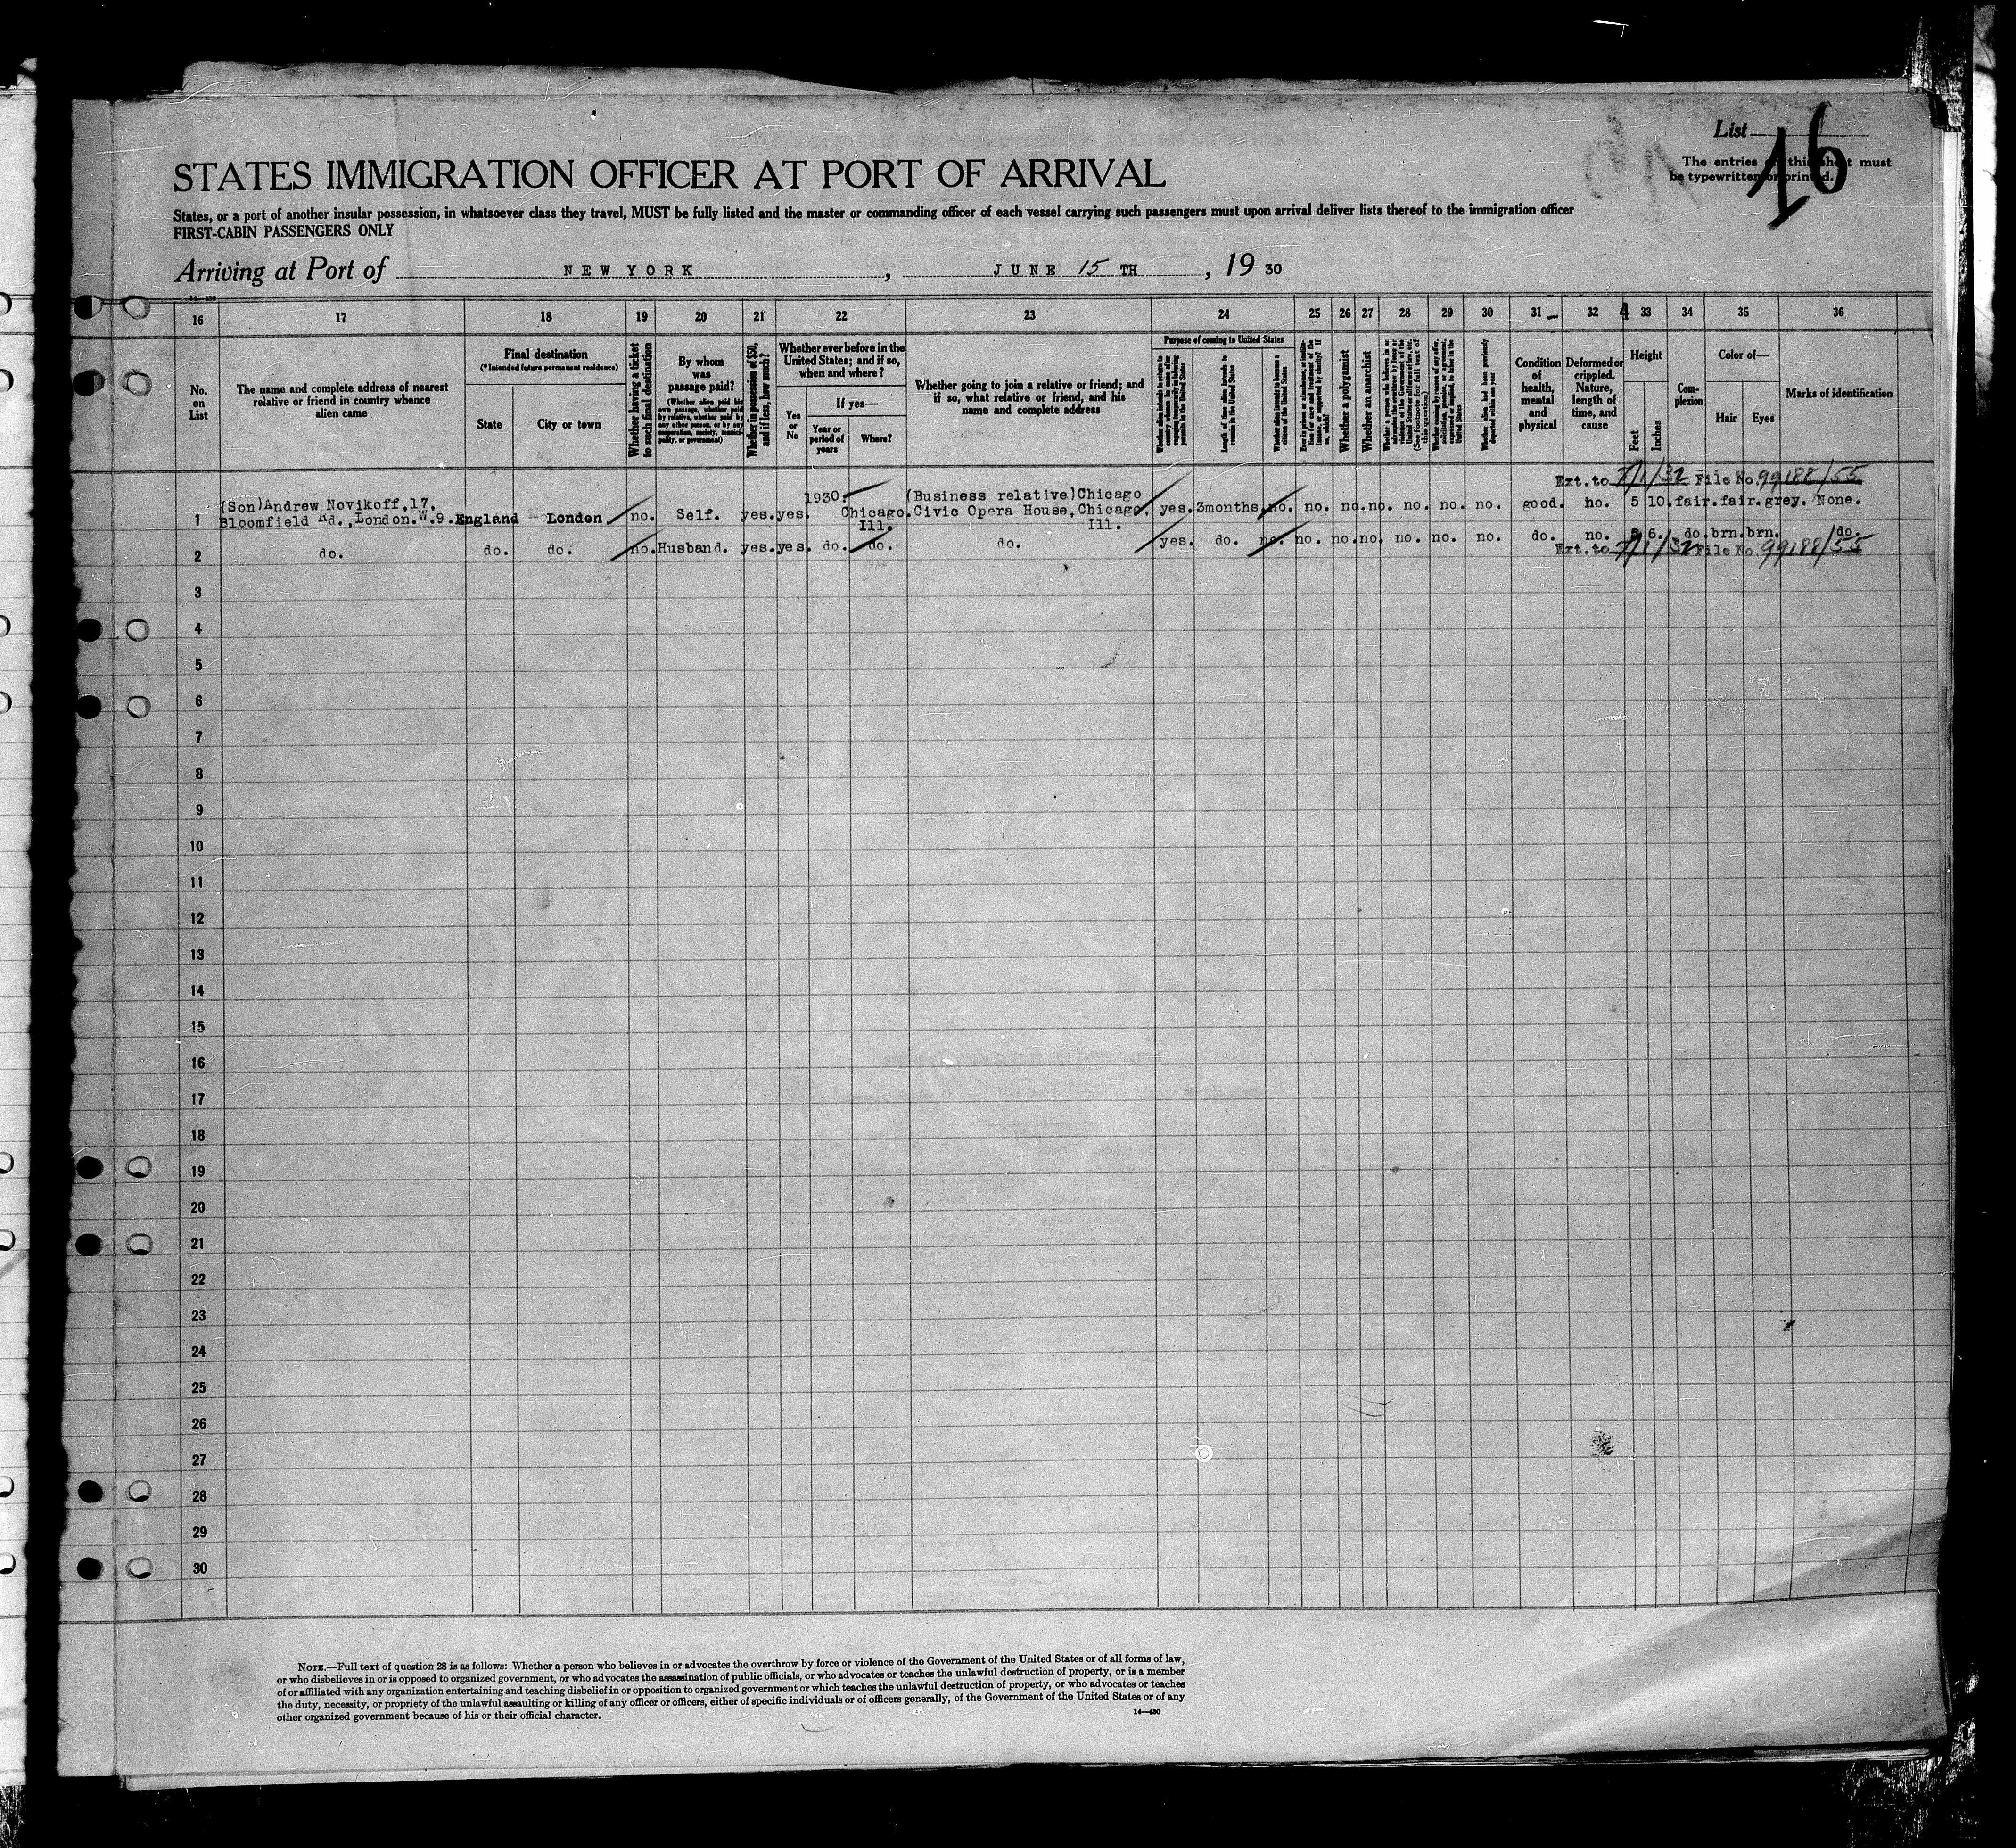 List 16
The entries on this sheet must
be typewritten or printed.
STATES IMMIGRATION OFFICER AT PORT OF ARRIVAL
States, or a port of another insular possession, in whatsoever class they travel, MUST be fully listed and the master or commanding officer of each vessel carrying such passengers must upon arrival deliver lists thereof to the immigration officer
FIRST-CABIN PASSENGERS ONLY
Arriving at Port of NEW YORK, JUNE 15 TH, 19 30
14—430
16 17 18 19 20 21 22 23 24 25 26 27 28 29 30 31 32 33 34 35 36
No. on List
The name and complete address of nearest relative or friend in country whence alien came
Final destination
(*Intended future permanent residence)
State
City or town
Whether having a ticket to such final destination
By whom was passage paid?
(Whether alien paid his own passage, whether paid by relative, whether paid by any other person, or by any corporation, society, municipality, or government)
Whether in possession of $50, and if less, how much?
Whether ever before in the United States; and if so, when and where?
Yes or No
If yes—
Year or period of years
Where?
Whether going to join a relative or friend; and if so, what relative or friend, and his name and complete address
Purpose of coming to United States
Length of time alien intends to remain in the United States
Whether alien intends to become a citizen of the United States
Whether a polygamist
Whether an anarchist
Condition of health, mental and physical
Deformed or crippled. Nature, length of time, and cause
Height
Feet
Inches
Complexion
Color of—
Hair
Eyes
Marks of identification
Ext. to 7/1/32 File No. 99188/55
1 (Son)Andrew Novikoff,17, Bloomfield Rd., London.W.9. England London no. Self. yes. yes. 1930. Chicago. Ill. (Business relative)Chicago Civic Opera House, Chicago, Ill. yes. 3months no. no. no. no. no. no. no. good. no. 5 10. fair. fair. grey. None.
2 do. do. do. no. Husband. yes. yes. do. do. do. yes. do. no. no. no. no. no. no. no. do. no. 5 6. do. brn. brn. do.
Ext. to 7/1/32 File No. 99188/55
3
4
5
6
7
8
9
10
11
12
13
14
15
16
17
18
19
20
21
22
23
24
25
26
27
28
29
30
NOTE.—Full text of question 28 is as follows: Whether a person who believes in or advocates the overthrow by force or violence of the Government of the United States or of all forms of law,
or who disbelieves in or is opposed to organized government, or who advocates the assassination of public officials, or who advocates or teaches the unlawful destruction of property, or is a member
of or affiliated with any organization entertaining and teaching disbelief in or opposition to organized government or which teaches the unlawful destruction of property, or who advocates or teaches
the duty, necessity, or propriety of the unlawful assaulting or killing of any officer or officers, either of specific individuals or of officers generally, of the Government of the United States or of any
other organized government because of his or their official character.
14—430